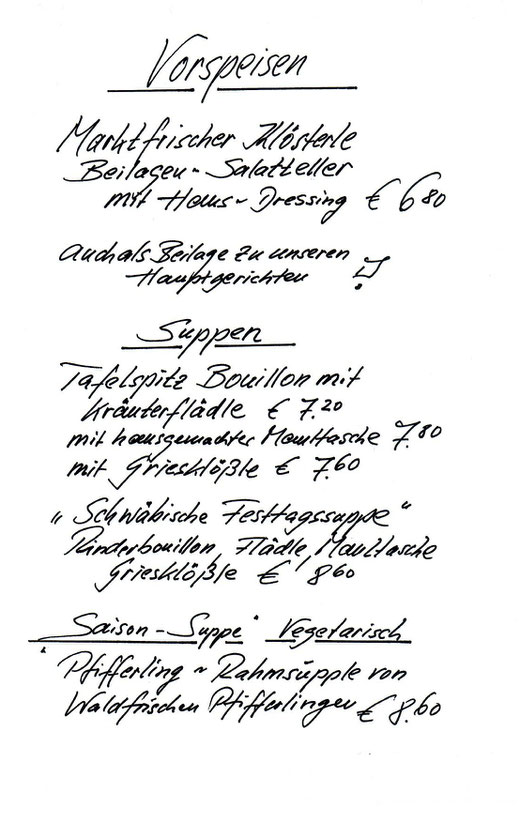 Vorspeisen
Marktfrischer Klösterle
Beilagen - Salatteller
mit Haus - Dressing € 6 80
auch als Beilage zu unseren
Hauptgerichten !
Suppen
Tafelspitz Bouillon mit
Kräuterflädle € 7.20
mit hausgemachter Maultasche 7.80
mit Griesklößle € 7.60
„Schwäbische Festtagssuppe“
Rinderbouillon, Flädle, Maultasche
Griesklößle € 8 60
„Saison - Suppe“ Vegetarisch
Pfifferling ~ Rahmsüpple von
Waldfrischen Pfifferlingen € 8.60